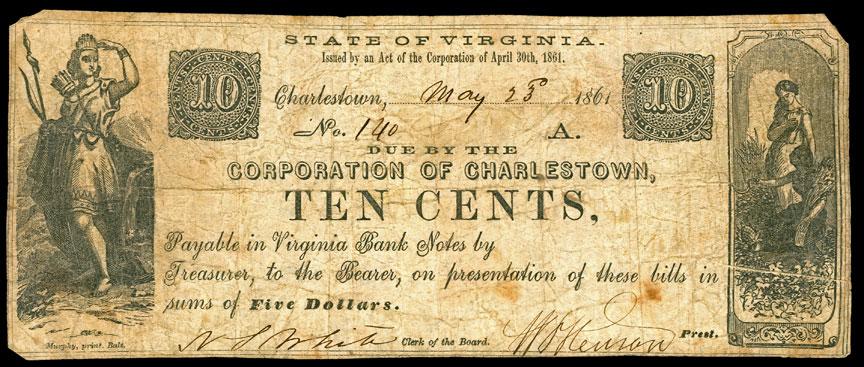 STATE OF VIRGINIA.
Issued by an Act of the Corporation of April 30th, 1861.
CENTS
10
CENTS
CENTS
10
CENTS
Charlestown, May 23d 1861
No. 140 A.
DUE BY THE
CORPORATION OF CHARLESTOWN,
TEN CENTS,
Payable in Virginia Bank Notes by
Treasurer, to the Bearer, on presentation of these bills in
sums of Five Dollars.
N S White Clerk of the Board. Prest.
Murphy, print. Balt.